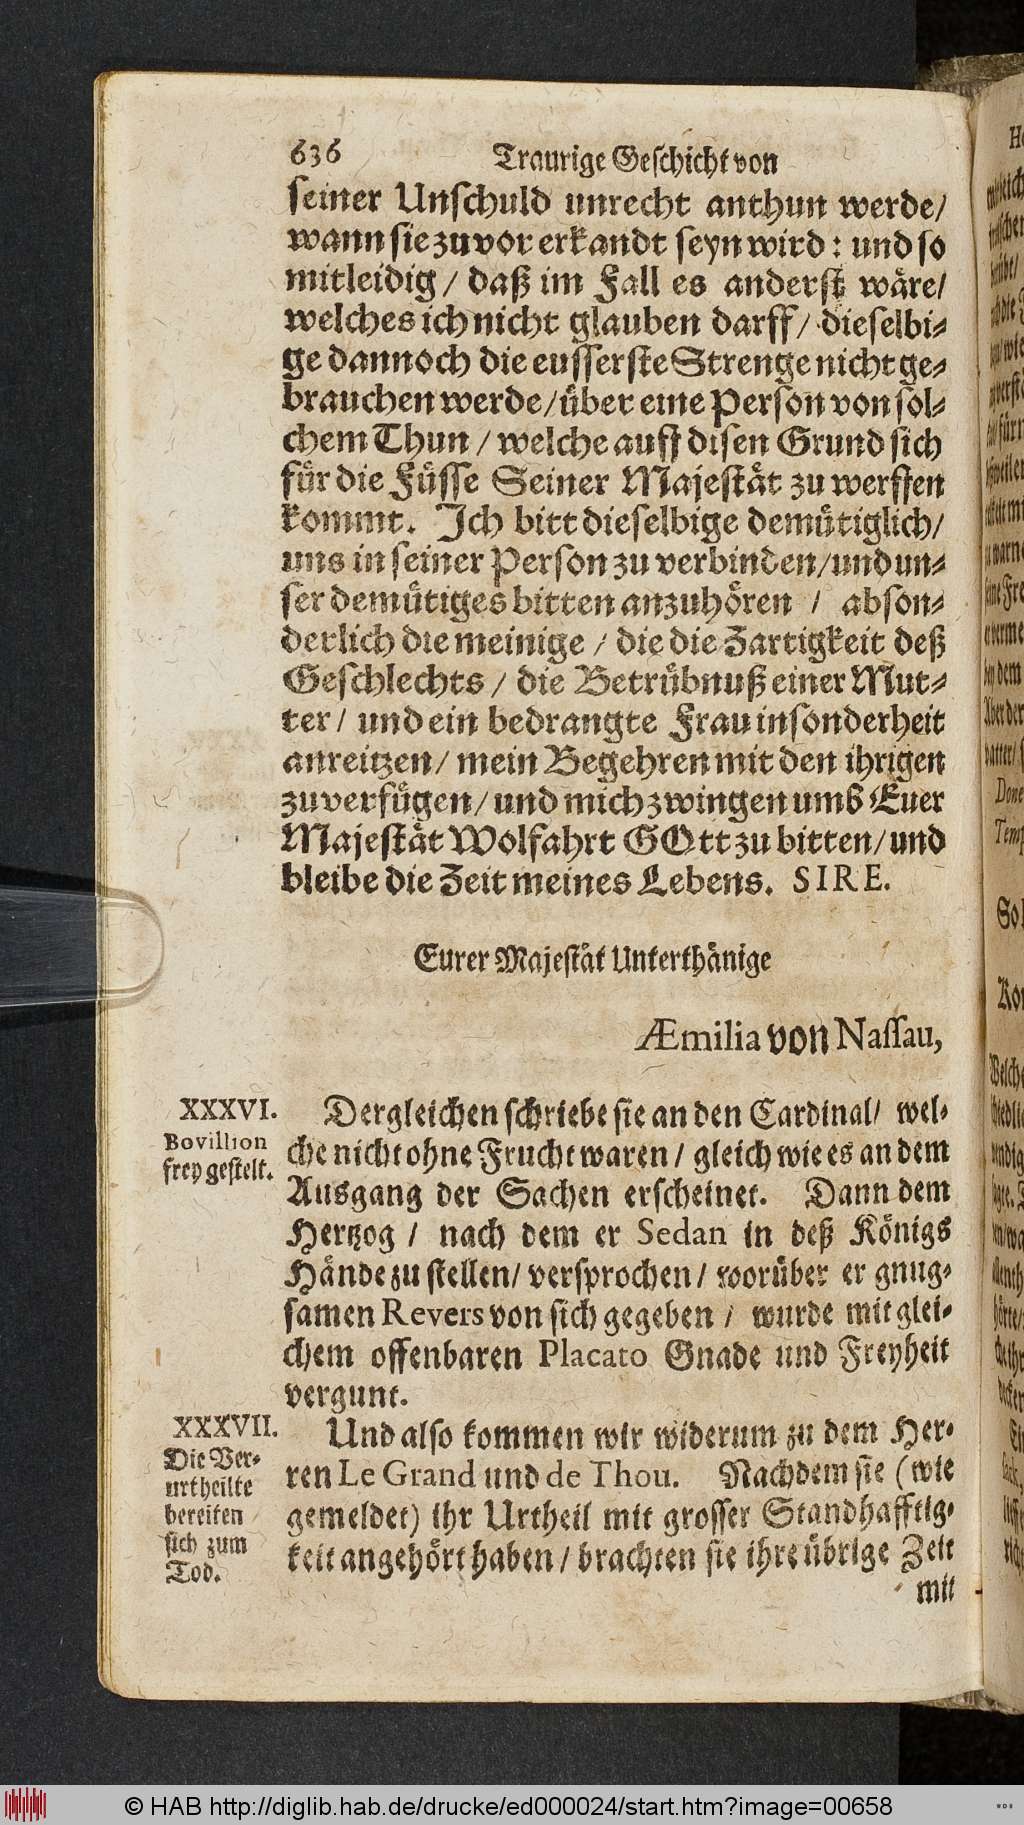 636 Traurige Geschicht von
seiner Unschuld unrecht anthun werde/
wann sie zuvor erkandt seyn wird: und so
mitleidig / daß im Fall es anderst wäre/
welches ich nicht glauben darff / dieselbi-
ge dannoch die eusserste Strenge nicht ge-
brauchen werde / über eine Person von sol-
chem Thun / welche auff disen Grund sich
für die Füsse Seiner Majestät zu werffen
kommt. Ich bitt dieselbige demütiglich/
uns in seiner Person zu verbinden / und un-
ser demütiges bitten anzuhören / abson-
derlich die meinige / die die Zartigkeit deß
Geschlechts / die Betrübnuß einer Mut-
ter / und ein bedrangte Frau insonderheit
anreitzen / mein Begehren mit den ihrigen
zuverfügen / und mich zwingen umb Euer
Majestät Wolfahrt GOtt zu bitten / und
bleibe die Zeit meines Lebens. SIRE.
Eurer Majestät Unterthänige
Æmilia von Nassau,
XXXVI.
Bovillion
frey gestelt.
Dergleichen schriebe sie an den Cardinal / wel-
che nicht ohne Frucht waren / gleich wie es an dem
Ausgang der Sachen erscheinet. Dann dem
Hertzog / nach dem er Sedan in deß Königs
Hände zu stellen / versprochen / worüber er gnug-
samen Revers von sich gegeben / wurde mit glei-
chem offenbaren Placato Gnade und Freyheit
vergunt.
XXXVII.
Die Ver-
urtheilte
bereiten
sich zum
Tod.
Und also kommen wir widerum zu dem Her-
ren Le Grand und de Thou. Nachdem sie (wie
gemeldet) ihr Urtheil mit grosser Standhafftig-
keit angehört haben / brachten sie ihre übrige Zeit
mit
© HAB http://diglib.hab.de/drucke/ed000024/start.htm?image=00658